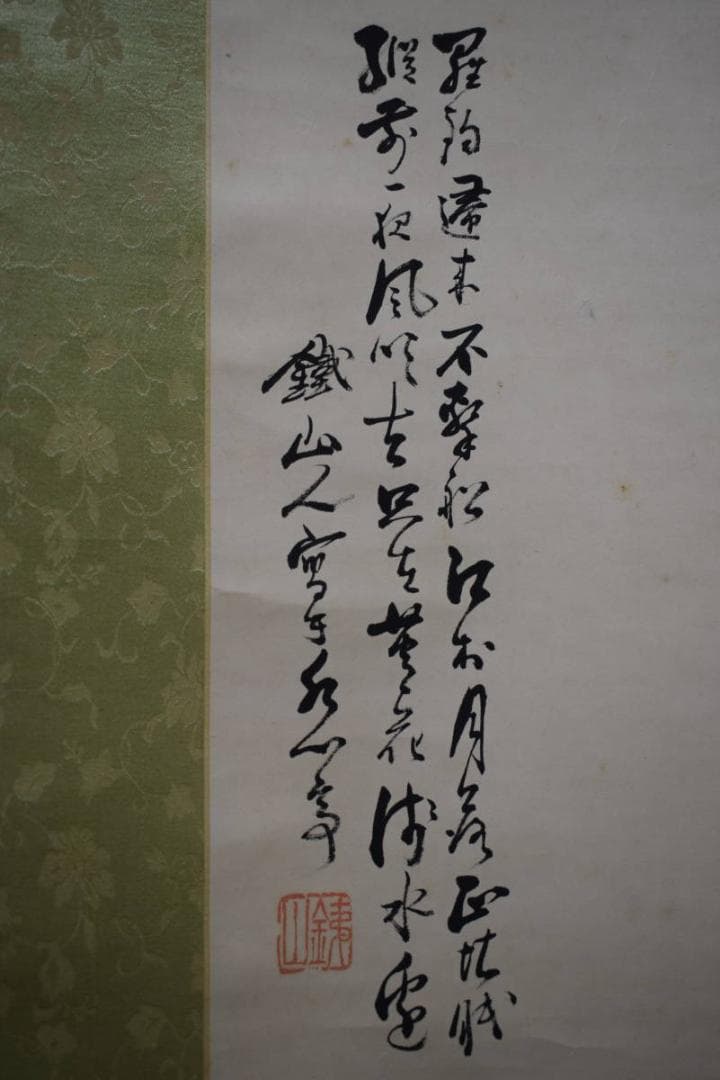 罷釣歸來不繫船江村月落正堪眠
縱前一夜風吹去只在蘆花淺水邊
鐵山人寫于心亭
銕山